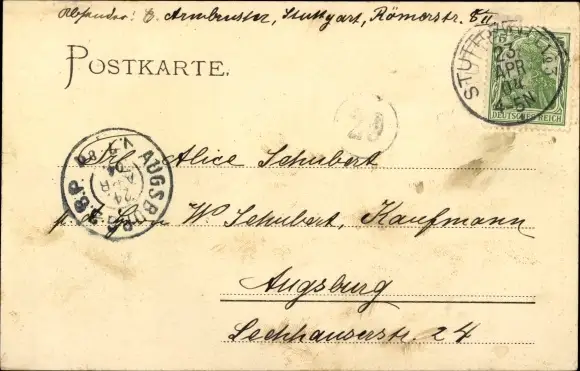 Absender: E. Armbruster, Stuttgart, Römerstr. 8 II
POSTKARTE.
STUTTGART No 3
23
APR
04
4-5N
DEUTSCHES REICH
29
AUGSBURG
V.
24
APR
04
Frl. Alice Schubert
p. Adr. Herrn W. Schubert, Kaufmann
Augsburg
Lechhauserstr. 24